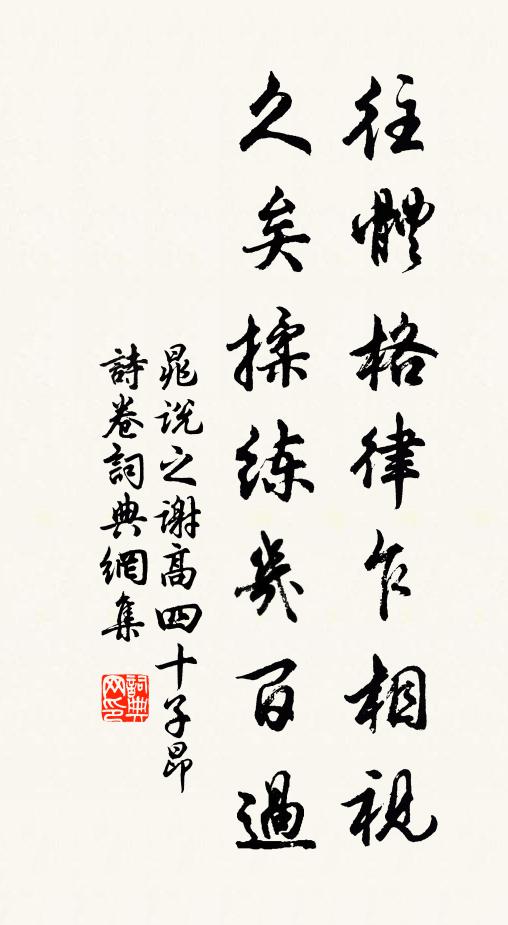 往體格律乍相視
久矣揉练幾百過
晁说之谢高四十子昂
詩卷詞典網集
詞典
网印